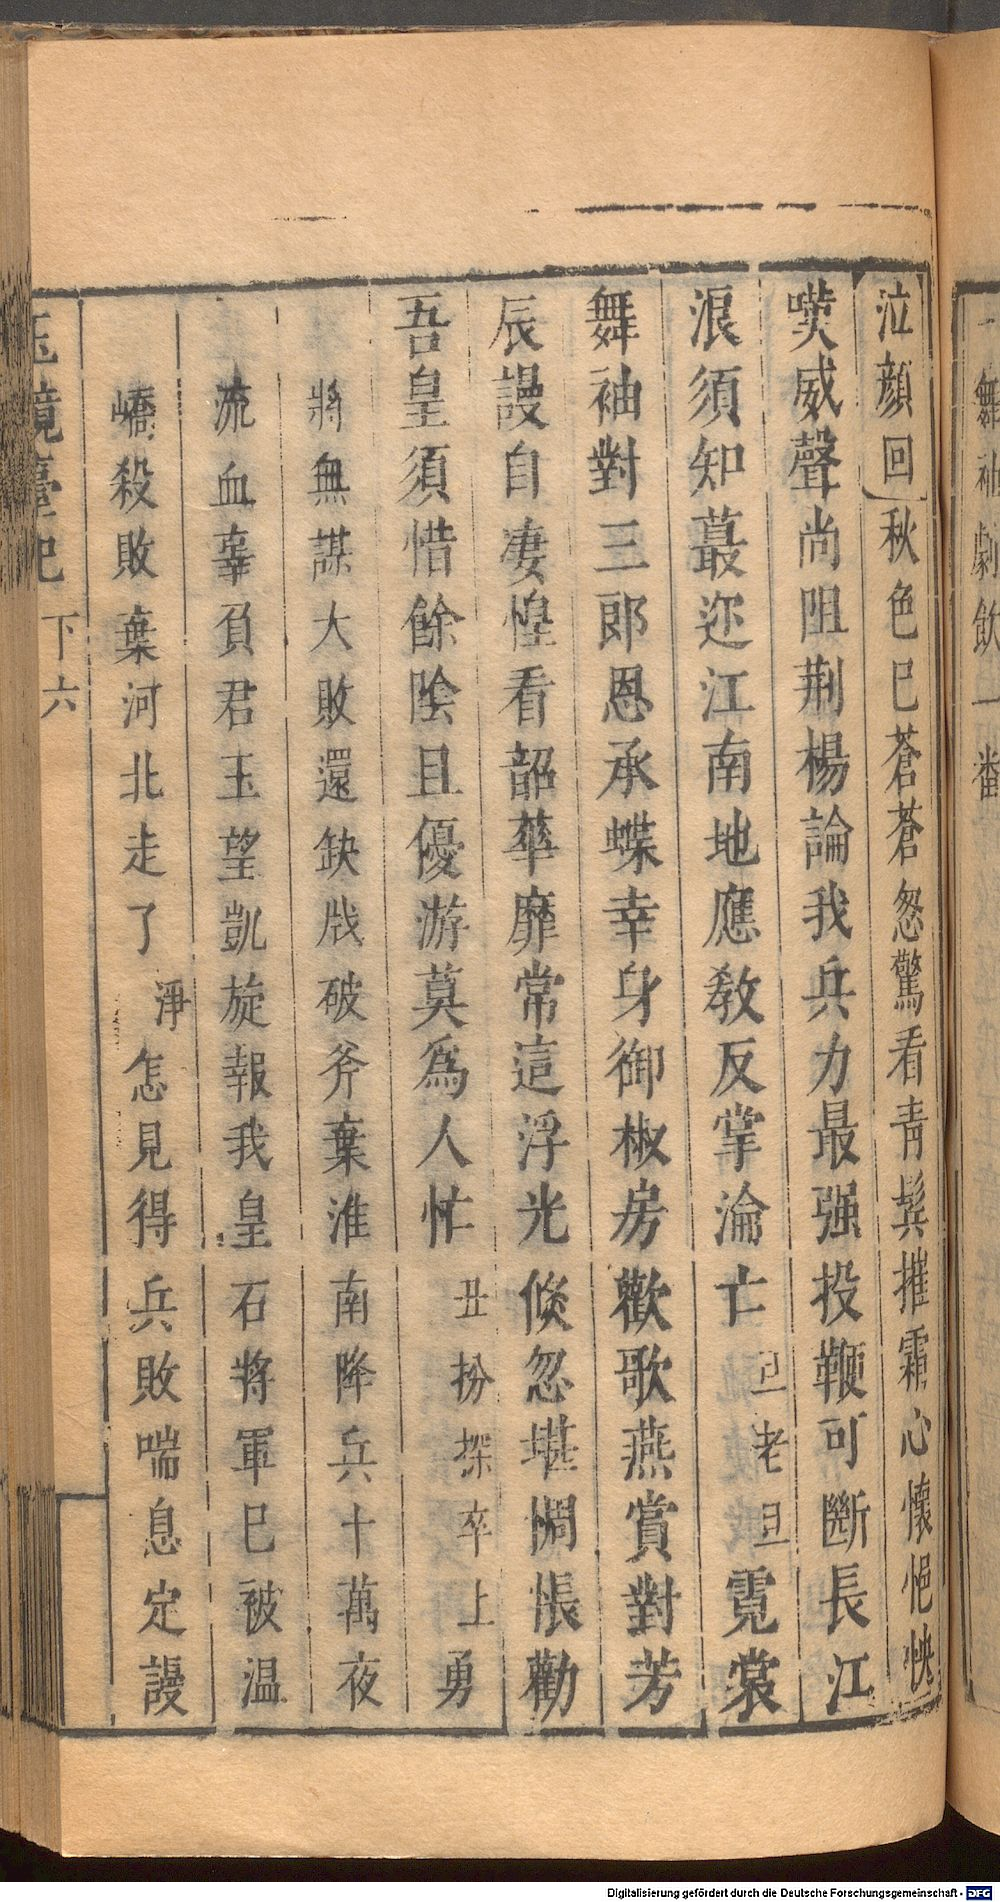 舞袖劇飲一番
泣顔回 秋色巳蒼蒼忽驚看靑髩摧霜心懷悒怏
嘆威聲尚阻荆楊論我兵力最强投鞭可斷長江
浪須知蕞迩江南地應敎反掌淪亡 旦老旦 霓裳
舞袖對三郎恩承蝶幸身御椒房歡歌燕賞對芳
辰謾自凄惶看韶華靡常這浮光倐忽堪惆悵勸
吾皇須惜餘陰且優游莫爲人忙 丑扮探卒上 勇
將無謀大敗還缺戕破斧棄淮南降兵十萬夜
流血辜負君王望凱旋報我皇石將軍巳被温
嶠殺敗棄河北走了 淨 怎見得 兵敗喘息定謾
玉鏡臺記 下 六
Digitalisierung gefördert durch die Deutsche Forschungsgemeinschaft - DFG